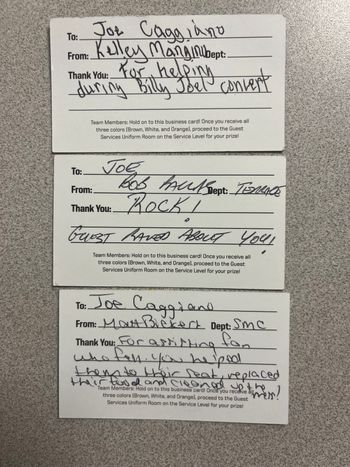 To: Joe Caggiano
From: Kelley Mangino Dept:
Thank You: For helping
during Billy Joel concert
Team Members: Hold on to this business card! Once you receive all
three colors (Brown, White, and Orange), proceed to the Guest
Services Uniform Room on the Service Level for your prize!
To: JOE
From: BOB Dept: TERRACE
Thank You: ROCK!
GUEST RAVED ABOUT YOU!
Team Members: Hold on to this business card! Once you receive all
three colors (Brown, White, and Orange), proceed to the Guest
Services Uniform Room on the Service Level for your prize!
To: Joe Caggiano
From: Matt Bickert Dept: SMC
Thank You: For assisting fan
who fell. You helped
them to their seat, replaced
their food and cleaned up the mess!
Team Members: Hold on to this business card! Once you receive all
three colors (Brown, White, and Orange), proceed to the Guest
Services Uniform Room on the Service Level for your prize!